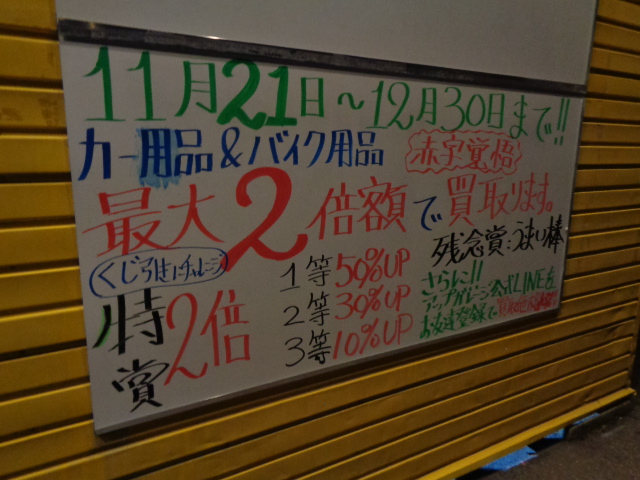 11月21日～12月30日まで!!
カー用品&バイク用品 赤字覚悟
最大2倍額で買取ります。
くじ引きにチャレンジ
特賞 2倍
1等 50%UP
2等 30%UP
3等 10%UP
残念賞:うまい棒
さらに!!
アップガレージ公式LINEを
お友達登録で